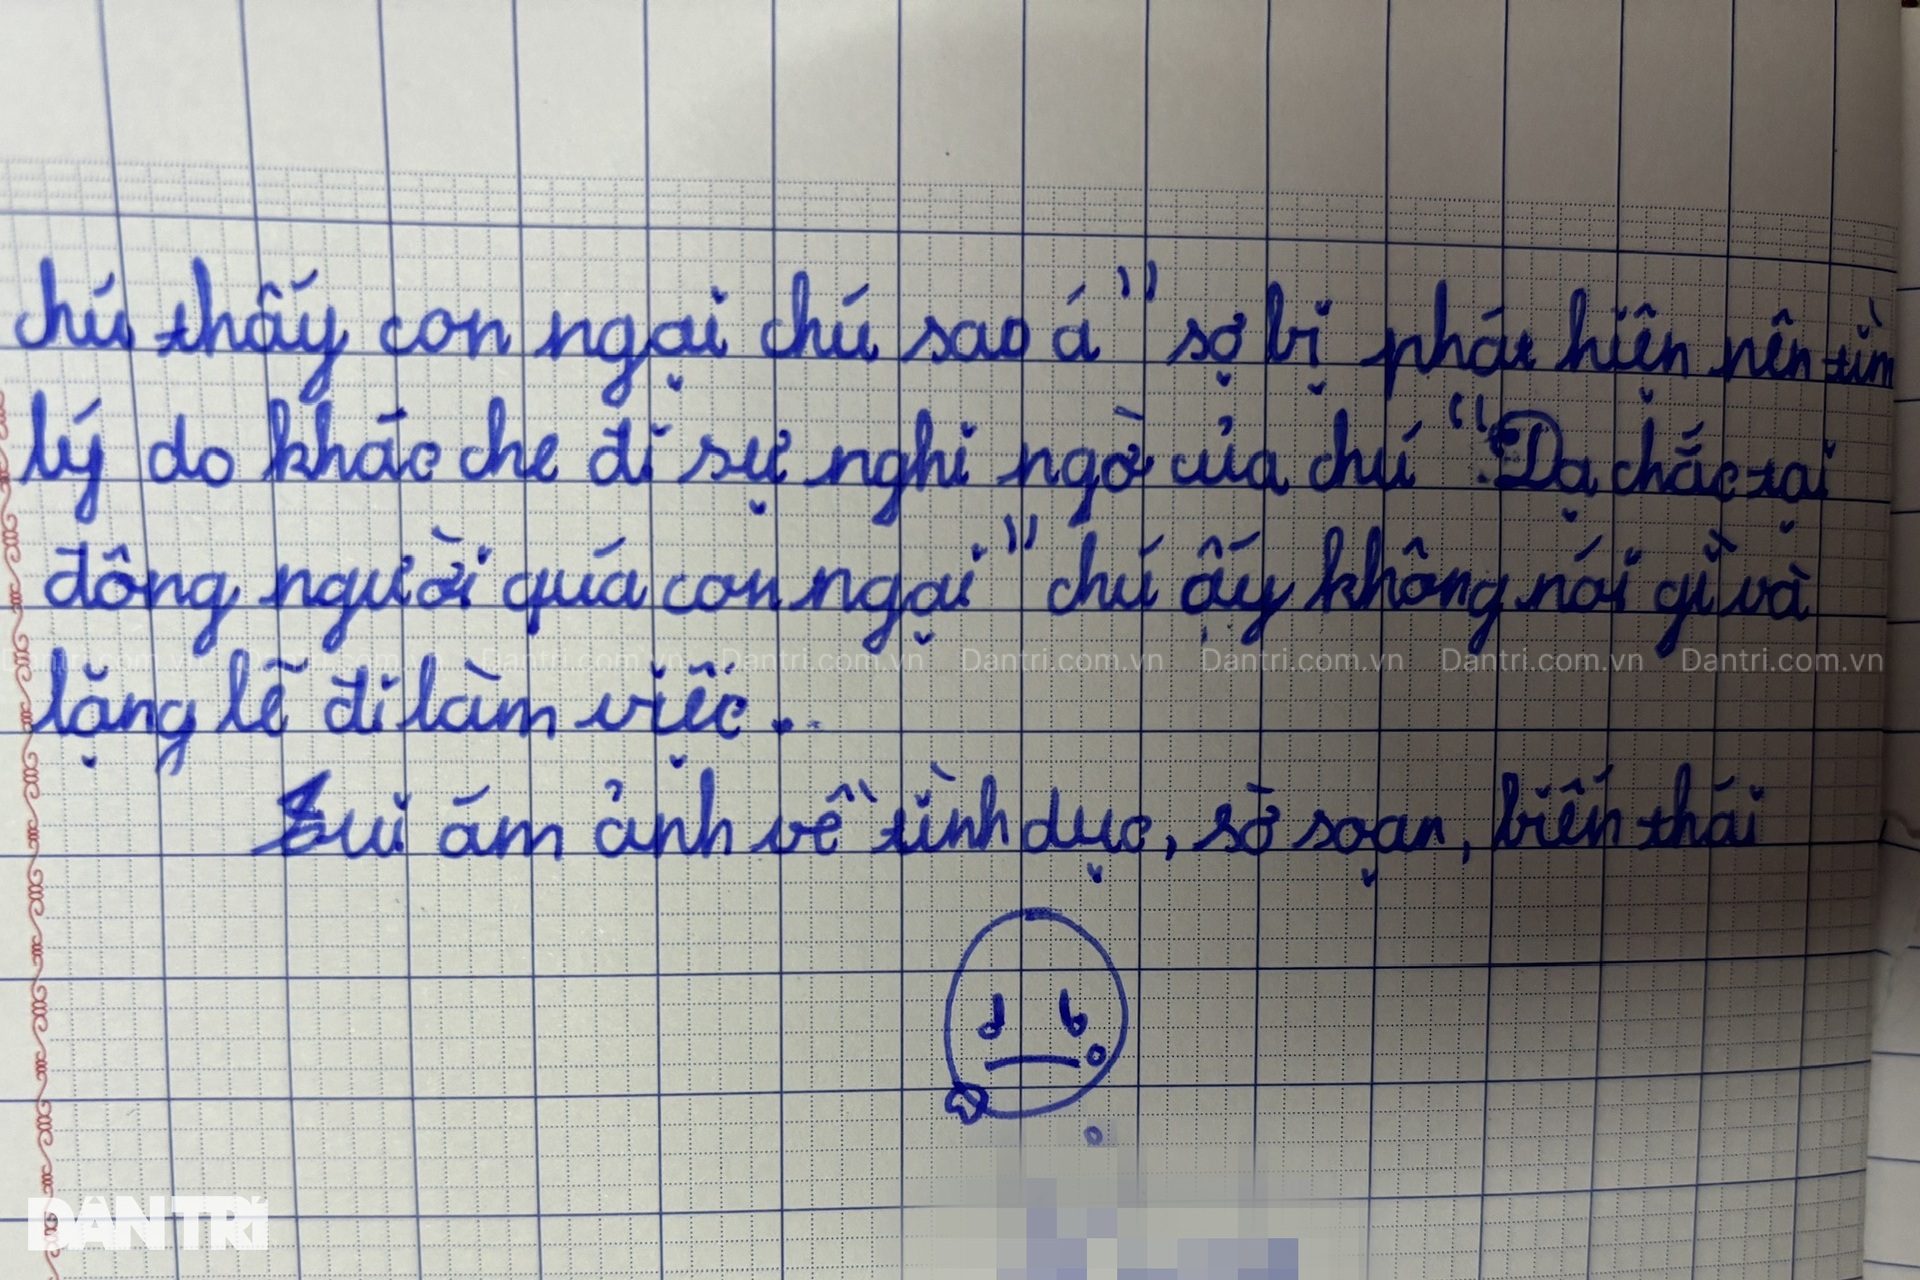 chú thấy con ngại chú sao á" sợ bị phát hiện nên tìm
lý do khác che đi sự nghi ngờ của chú "Dạ chắc tại
đông người quá con ngại" chú ấy không nói gì và
Dantri.com.vn Dantri.com.vn Dantri.com.vn Dantri.com.vn Dantri.com.vn Dantri.com.vn Dantri.com.vn
lặng lẽ đi làm việc.
Tui ám ảnh về tình dục, sờ soạn, biến thái
DÂN TRÍ